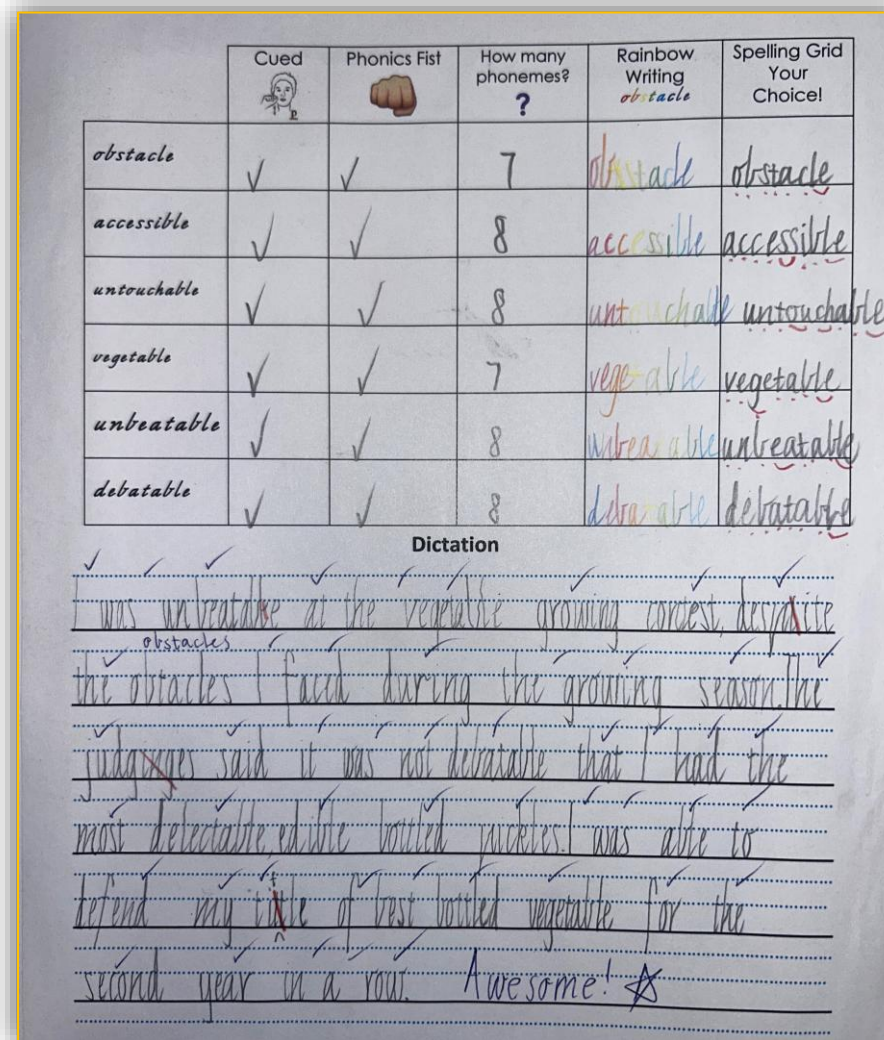 Cued Phonics Fist How many phonemes? ? Rainbow Writing obstacle Spelling Grid Your Choice!
obstacle ✓ ✓ 7 obstacle obstacle
accessible ✓ ✓ 8 accessible accessible
untouchable ✓ ✓ 8 untouchable untouchable
vegetable ✓ ✓ 7 vegetable vegetable
unbeatable ✓ ✓ 8 unbeatable unbeatable
debatable ✓ ✓ 8 debatable debatable
Dictation
I was at the vegetable growing contest,
obstacles
the obtacles I faced during the growing season. The
said it was not debatable that I had the
most delectable, edible bottled I was able to
defend my of best bottled vegetable for the
second year in a row. Awesome!